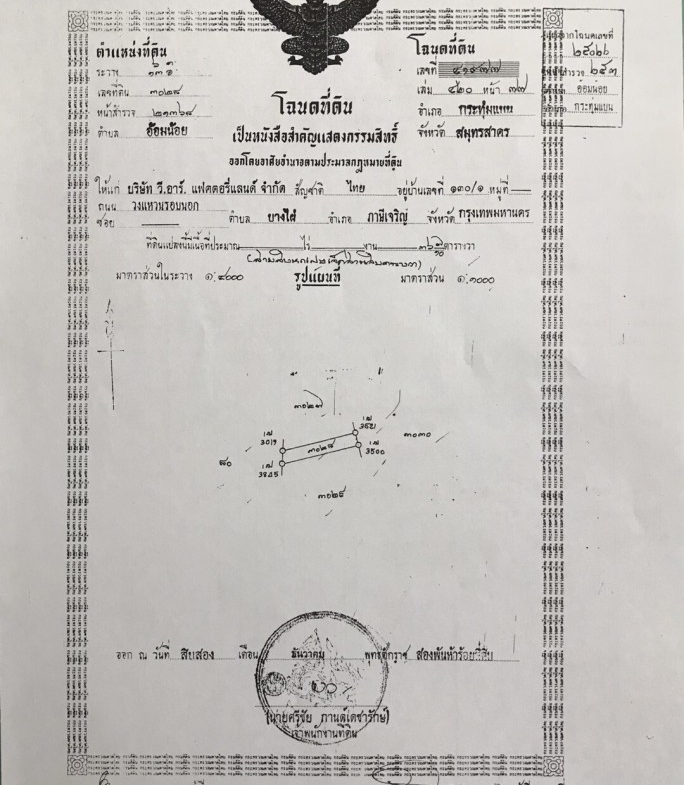 ตำแหน่งที่ดิน
ระวาง
เลขที่ดิน ๓๐๒๘
หน้าสำรวจ ๒๑๓๖๘
ตำบล อ้อมน้อย
โฉนดที่ดิน
เลขที่
เล่ม ๔๒๐ หน้า ๗๗
อำเภอ กระทุ่มแบน
จังหวัด สมุทรสาคร
จากโฉนดเลขที่
๒๕๐๒๒
สำรวจ ๒๕๓
อ้อมน้อย
กระทุ่มแบน
โฉนดที่ดิน
เป็นหนังสือสำคัญแสดงกรรมสิทธิ์
ออกโดยอาศัยอำนาจตามประมวลกฎหมายที่ดิน
ให้แก่ บริษัท วี.อาร์. แฟคตอรี่แลนด์ จำกัด สัญชาติ ไทย อยู่บ้านเลขที่ ๑๓๐/๑ หมู่ที่
ถนน วงแหวนรอบนอก
ซอย ตำบล บางไผ่ อำเภอ ภาษีเจริญ จังหวัด กรุงเทพมหานคร
ที่ดินแปลงนี้มีเนื้อที่ประมาณ ไร่ งาน ตารางวา
มาตราส่วนในระวาง ๑:๔๐๐๐ รูปแผนที่ มาตราส่วน ๑:๑๐๐๐
๓๐๒๗
3019
3521
๓๐๒๘
๓๐๓๐
3500
3845
๓๐๒๙
ออก ณ วันที่ สิบสอง เดือน ธันวาคม พุทธศักราช สองพันห้าร้อยสี่สิบ
(นายศรีชัย กานต์เดชารักษ์)
เจ้าพนักงานที่ดิน